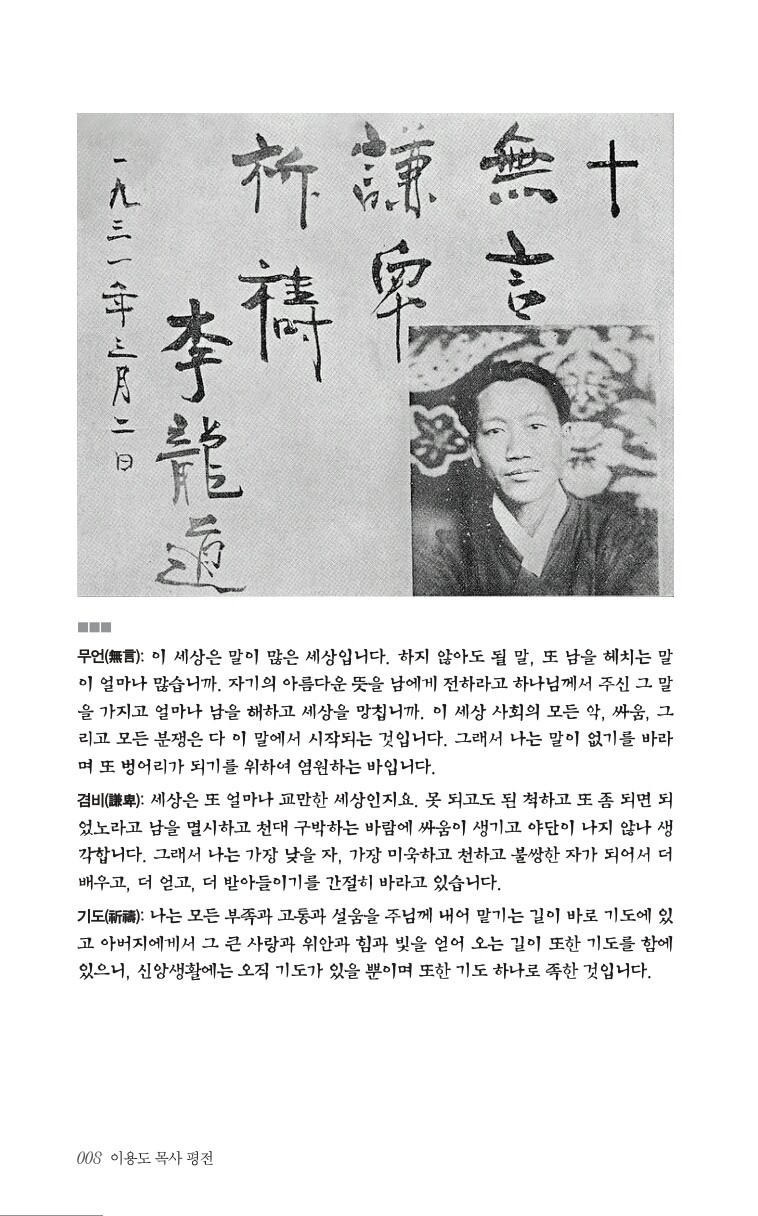 十
無言
謙卑
祈禱
李龍道
一九三一年三月二日
무언(無言): 이 세상은 말이 많은 세상입니다. 하지 않아도 될 말, 또 남을 헤치는 말
이 얼마나 많습니까. 자기의 아름다운 뜻을 남에게 전하라고 하나님께서 주신 그 말
을 가지고 얼마나 남을 해하고 세상을 망칩니까. 이 세상 사회의 모든 악, 싸움, 그
리고 모든 분쟁은 다 이 말에서 시작되는 것입니다. 그래서 나는 말이 없기를 바라
며 또 벙어리가 되기를 위하여 염원하는 바입니다.
겸비(謙卑): 세상은 또 얼마나 교만한 세상인지요. 못 되고도 된 척하고 또 좀 되면 되
었노라고 남을 멸시하고 천대 구박하는 바람에 싸움이 생기고 야단이 나지 않나 생
각합니다. 그래서 나는 가장 낮을 자, 가장 미욱하고 천하고 불쌍한 자가 되어서 더
배우고, 더 얻고, 더 받아들이기를 간절히 바라고 있습니다.
기도(祈禱): 나는 모든 부족과 고통과 설움을 주님께 내어 맡기는 길이 바로 기도에 있
고 아버지에게서 그 큰 사랑과 위안과 힘과 빛을 얻어 오는 길이 또한 기도를 함에
있으니, 신앙생활에는 오직 기도가 있을 뿐이며 또한 기도 하나로 족한 것입니다.
008 이용도 목사 평전